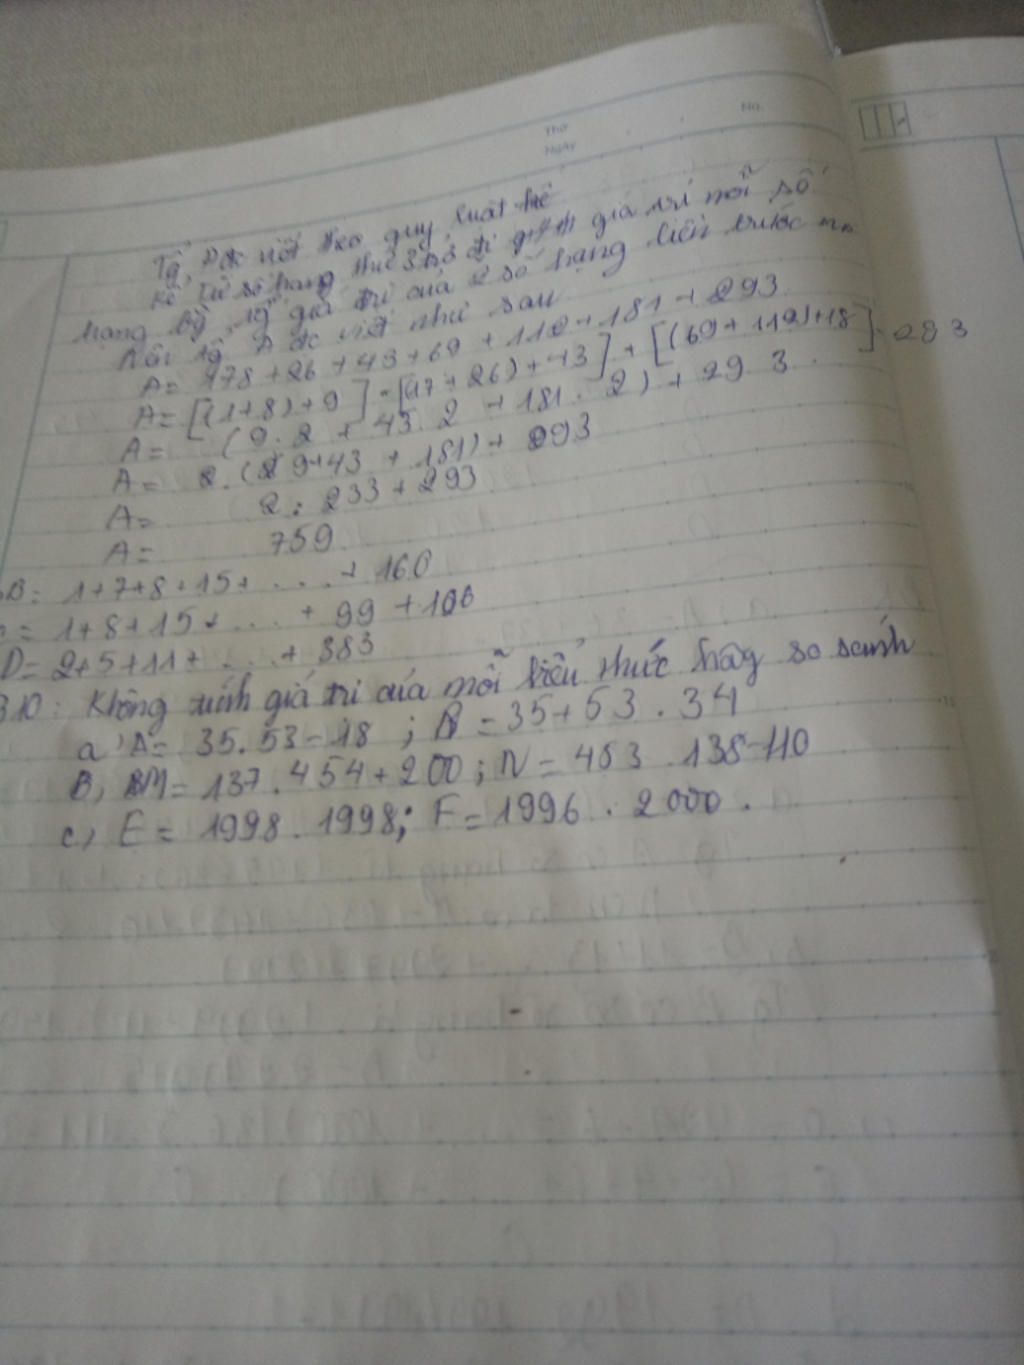 Thứ
Ngày
No.
Tg A đc viết theo quy luật
kể từ số hạng thứ 3 trở đi giá trị mỗi số
hạng giá trị của 2 số hạng liền trước
Nên tg A đc viết như sau
A= 178+26+43+69+112+181+293
A=[(1+8)+9]+[(17+26)+43]+[(69+112)+18]+293
A= (9.2+43.2+181.2)+293
A= 2.(9+43+181)+293
A= 2.233+293
A= 759
B= 1+7+8+15+....+160
= 1+8+15+...+99+106
D= 2+5+11+...+383
B10: Không tính giá trị của mỗi biểu thức hãy so sánh
a, A= 35.53-18; B=35+53.34
B, M= 137.454+200; N= 453.138-110
c, E= 1998.1998; F=1996.2000.